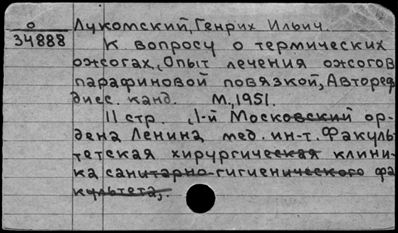 о
34888
Лукомский, Генрих Ильич.
К вопросу о термических
ожогах, Опыт лечения ожогов
парафиновой повязкой, Автореф
дисс. канд. М., 1951.
11 стр. , 1-й Московский ор-
дена Ленина мед. ин-т. Факуль-
тетская хирургическая клини-
ка санитарно-гигиенического фа
культета,.